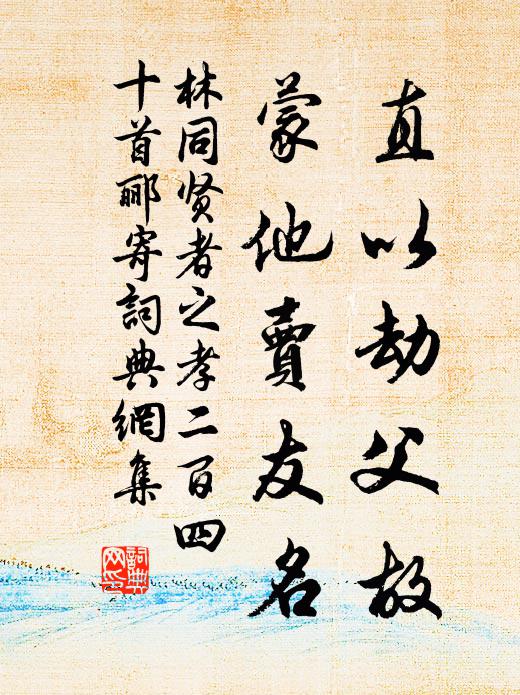 直以劫父故
蒙他賣友名
林同贤者之孝二百四
十首郦寄詞典網集